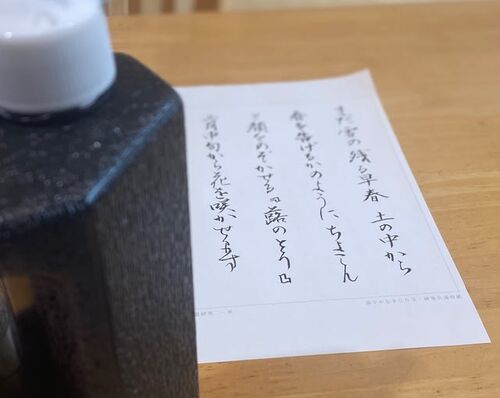 まだ雪の残る早春 土の中から
春を告げるかのように、ちょこん
と顔をのぞかせる「蕗のとう」
月中旬から花を咲かせます